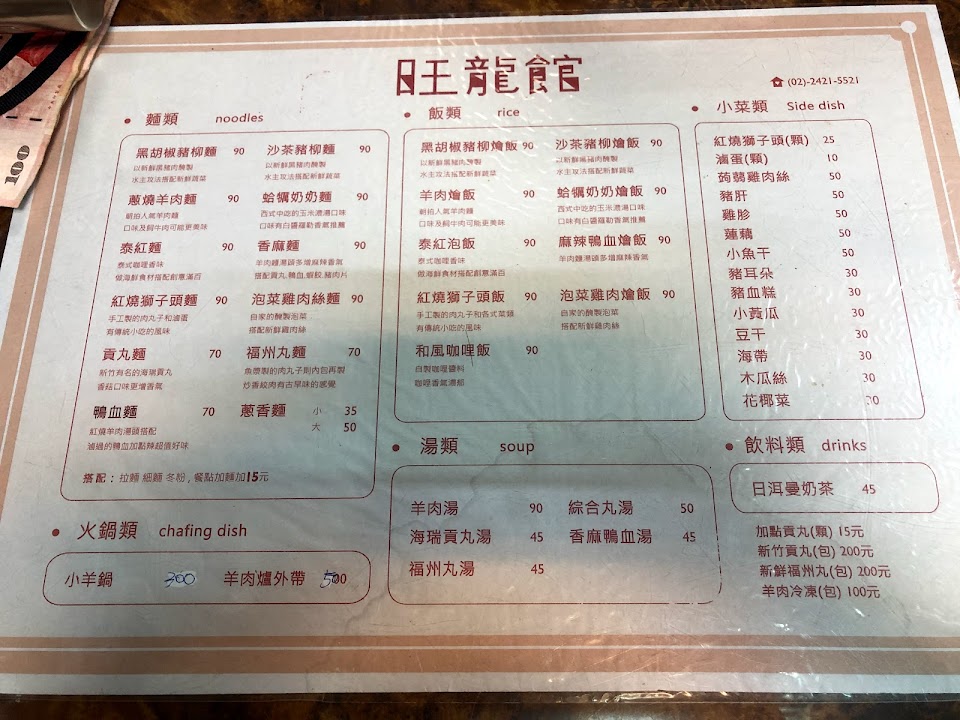 100
旺龍館
(02)-2421-5521
麵類 noodles
黑胡椒豬柳麵 90
以新鮮黑豬肉醃製
水主攻法搭配新鮮蔬菜
沙茶豬柳麵 90
以新鮮黑豬肉醃製
水主攻法搭配新鮮蔬菜
蔥燒羊肉麵 90
朝拍人氣羊肉麵
口味及飼牛肉可能更美味
蛤蠣奶奶麵 90
西式中吃的玉米濃湯口味
口味有白醬羅勒香氣推薦
泰紅麵 90
泰式咖哩香味
做海鮮食材搭配創意滿百
香麻麵 90
羊肉麵湯頭多增麻辣香氣
搭配貢丸,鴨血,蝦餃,豬肉片
紅燒獅子頭麵 90
手工製的肉丸子和滷蛋
有傳統小吃的風味
泡菜雞肉絲麵 90
自家的醃製泡菜
搭配新鮮雞肉絲
貢丸麵 70
新竹有名的海瑞貢丸
香菇口味更增香氣
福州丸麵 70
魚漿製的肉丸子則內包再製
炒香絞肉有古早味的感覺
鴨血麵 70
紅燒羊肉湯頭搭配
滷過的鴨血加點辣超值好味
蔥香麵 小 35
大 50
搭配: 拉麵 細麵 冬粉, 餐點加麵加15元
火鍋類 chafing dish
小羊鍋 300
羊肉爐外帶 500
飯類 rice
黑胡椒豬柳燴飯 90
以新鮮黑豬肉醃製
水主攻法搭配新鮮蔬菜
沙茶豬柳燴飯 90
以新鮮黑豬肉醃製
水主攻法搭配新鮮蔬菜
羊肉燴飯 90
朝拍人氣羊肉麵
口味及飼牛肉可能更美味
蛤蠣奶奶燴飯 90
西式中吃的玉米濃湯口味
口味有白醬羅勒香氣推薦
泰紅泡飯 90
泰式咖哩香味
做海鮮食材搭配創意滿百
麻辣鴨血燴飯 90
羊肉麵湯頭多增麻辣香氣
紅燒獅子頭飯 90
手工製的肉丸子和各式菜類
有傳統小吃的風味
泡菜雞肉燴飯 90
自家的醃製泡菜
搭配新鮮雞肉絲
和風咖哩飯 90
自製咖哩醬料
咖哩香氣濃郁
湯類 soup
羊肉湯 90
綜合丸湯 50
海瑞貢丸湯 45
香麻鴨血湯 45
福州丸湯 45
小菜類 Side dish
紅燒獅子頭(顆) 25
滷蛋(顆) 10
蒟蒻雞肉絲 50
豬肝 50
雞胗 50
蓮藕 50
小魚干 50
豬耳朵 30
豬血糕 30
小黃瓜 30
豆干 30
海帶 30
木瓜絲 30
花椰菜
飲料類 drinks
日洱曼奶茶 45
加點貢丸(顆) 15元
新竹貢丸(包) 200元
新鮮福州丸(包) 200元
羊肉冷凍(包) 100元